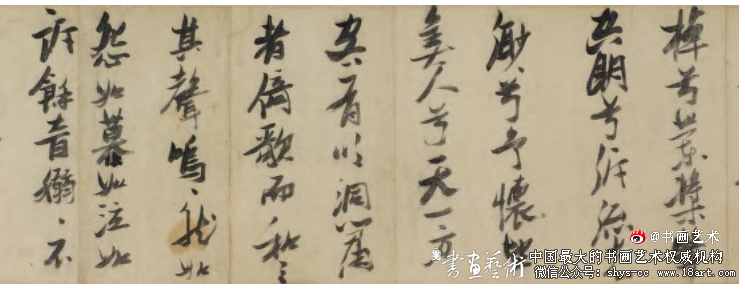 棹兮蘭槳擊
空明兮泝流光
渺〻兮予懷望
美人兮天一方
客有吹洞簫
者倚歌而和之
其聲嗚〻然如
怨如慕如泣如
訴餘音嫋〻不
@书画艺术
書畫藝術
中国最大的书画艺术权威机构
微信公众号：shys-cc www.18art.com